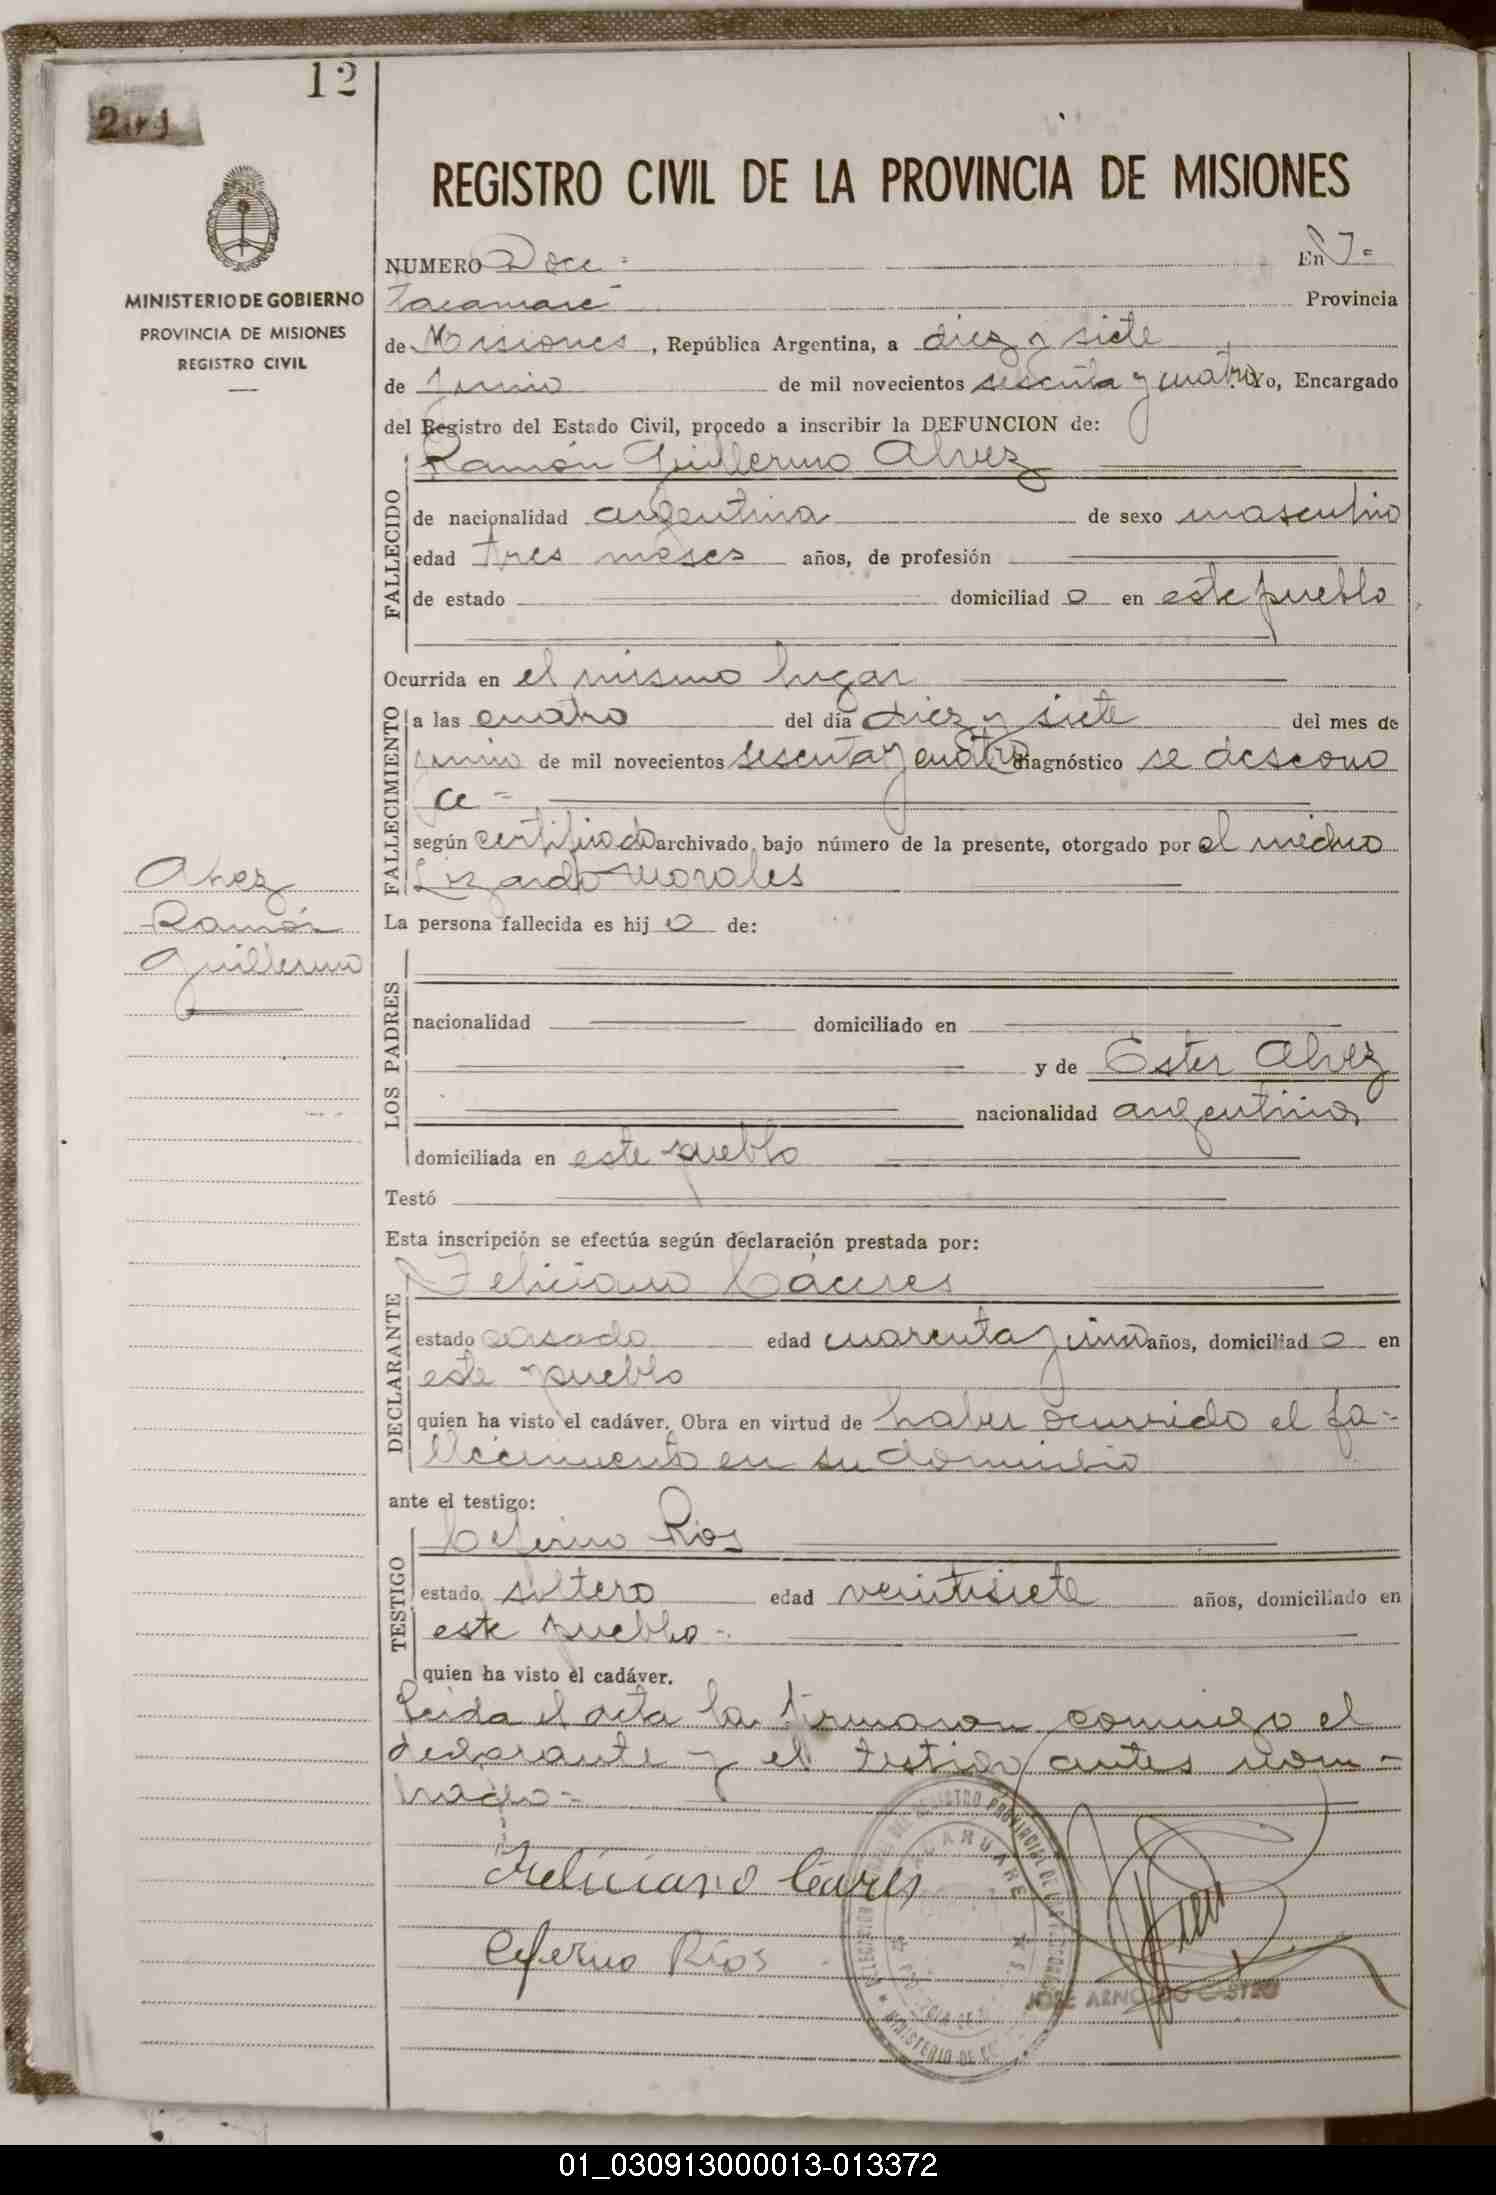 12
209
REGISTRO CIVIL DE LA PROVINCIA DE MISIONES
MINISTERIO DE GOBIERNO
PROVINCIA DE MISIONES
REGISTRO CIVIL
NUMERO Doce = En I=
tacaruaré Provincia
de Misiones, República Argentina, a diez y siete
de Junio de mil novecientos sesenta y cuatro yo, Encargado
del Registro del Estado Civil, procedo a inscribir la DEFUNCION de:
Ramón Guillermo Alvez
FALLECIDO
de nacionalidad argentina de sexo masculino
edad tres meses años, de profesión
de estado domiciliad o en este pueblo
Ocurrida en el mismo lugar
FALLECIMIENTO
a las cuatro del día diez y siete del mes de
junio de mil novecientos sesenta y cuatro diagnóstico se descono
ce =
según certificado archivado, bajo número de la presente, otorgado por el médico
Lizardo Morales
Alvez
Ramón
Guillermo
La persona fallecida es hij o de:
LOS PADRES
nacionalidad domiciliado en
y de Ester Alvez
nacionalidad argentina
domiciliada en este pueblo
Testó
Esta inscripción se efectúa según declaración prestada por:
Feliciano Cáceres
DECLARANTE
estado casado edad cuarenta y uno años, domiciliad o en
este pueblo
quien ha visto el cadáver. Obra en virtud de haber ocurrido el fa=
llecimiento en su domicilio
ante el testigo:
Ceferino Rios
TESTIGO
estado soltero edad veintisiete años, domiciliado en
este pueblo-.
quien ha visto el cadáver.
Leida el acta la firmaron conmigo el
declarante y el testigo antes nom-
brado=
Feliciano
Ceferino Ríos
JOSE ARNOLDO CASTRO
01_030913000013-013372